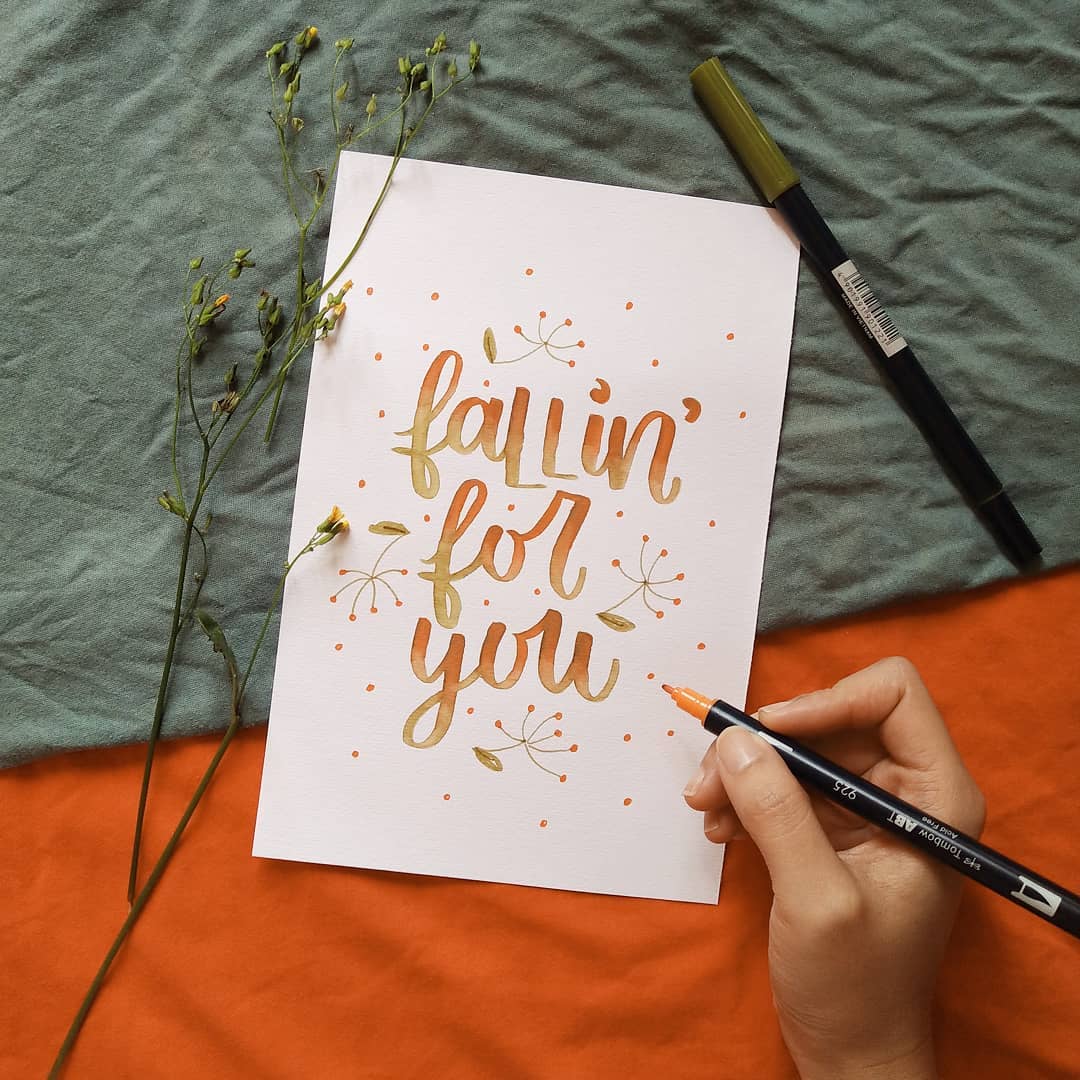 fallin'
for
you
925
ABT
Tombow
Acid Free